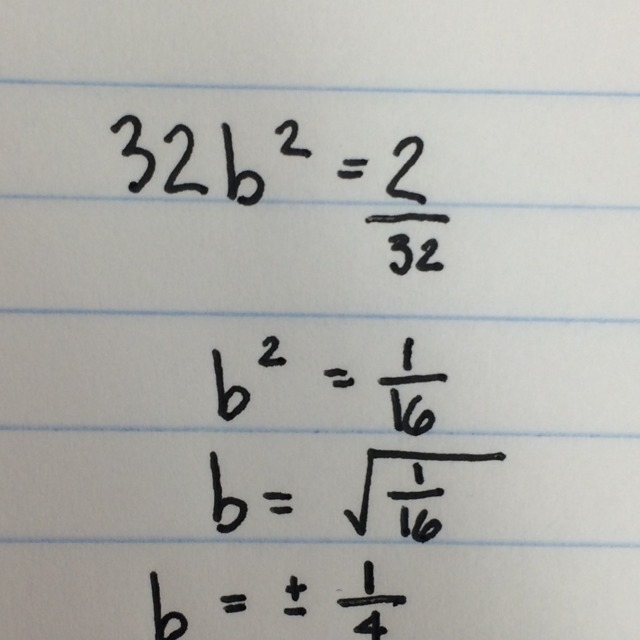 32b² = 2/32
b² = 1/16
b = √(1/16)
b = ± 1/4